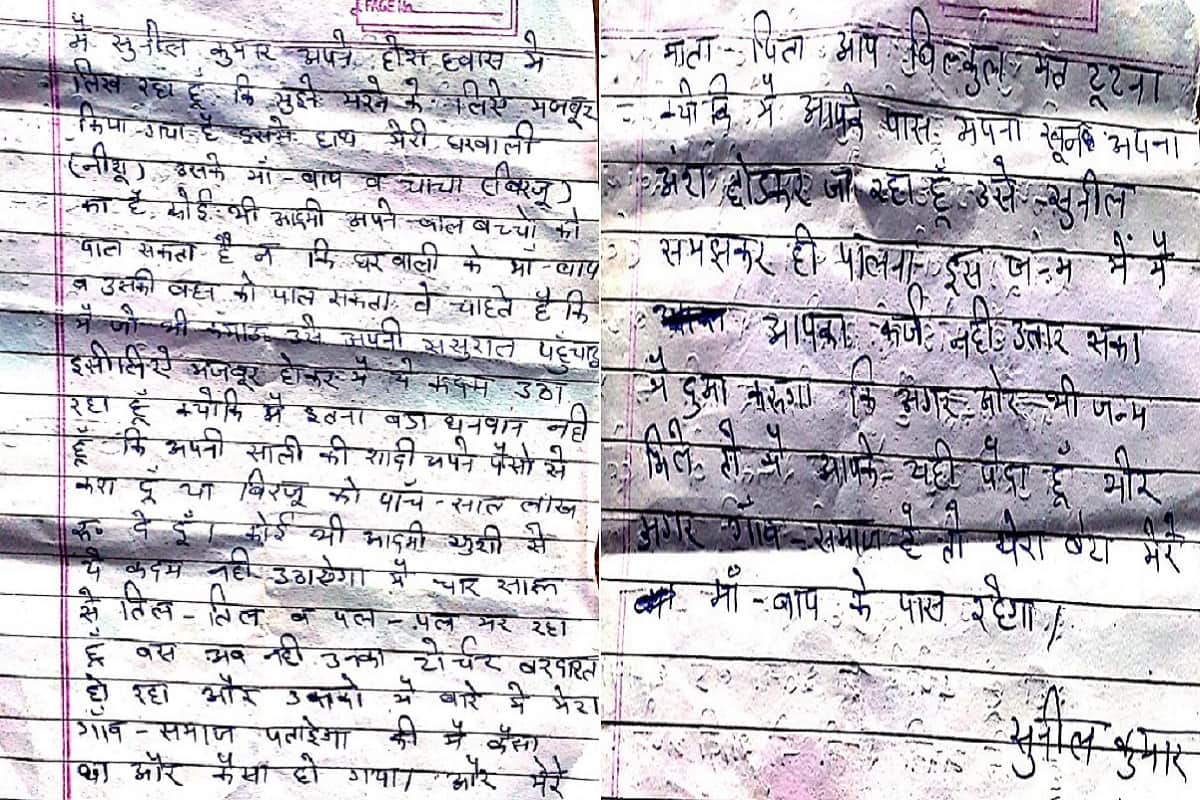 PAGE No
मैं सुनील कुमार अपने होश हवास मे
लिख रहा हूँ कि मुझे मरने के लिऐ मजबूर
किया गया है इसमे हाथ मेरी घरवाली
(नीशू) उसके माँ-बाप व चाचा (बिरजू)
का है कोई भी आदमी अपने बाल बच्चो को
पाल सकता है न कि घरवाली के माँ-बाप
व उसकी बहन को पाल सकता वे चाहते है कि
मैं जो भी कमाऊ उसे अपनी ससुराल पहुँचाऊ
इसीलिऐ मजबूर होकर मै ये कदम उठा
रहा हूँ क्योकि मै इतना बडा धनवान नही
हूँ कि अपनी साली की शादी अपने पैसो से
करा दूँ या बिरजू को पाँच-सात लाख
रू० दे दूँ। कोई भी आदमी खुशी से
ये कदम नही उठाऐगा मै चार साल
से तिल-तिल व पल-पल मर रहा
हूँ बस अब नही उनका टोर्चर बरदास्त
हो रहा और उनको मे बारे मे मेरा
गाँव-समाज बताऐगा की मै कैसा
था और कैसा हो गया। और मेरे
माता-पिता आप बिल्कुल मत टूटना
क्योकि मै आपके पास अपना खून अपना
अंश छोडकर जा रहा हूँ उसे सुनील
समझकर ही पालना इस जन्म में मै
आपका कर्ज नही उतार सका
मै दुआ करूगा कि अगर ओर भी जन्म
मिले तो मै आपके यही पैदा हूँ ओर
अगर गाँव-समाज है तो मेरा बेटा मेरे
माँ-बाप के पास रहेगा।
सुनील कुमार